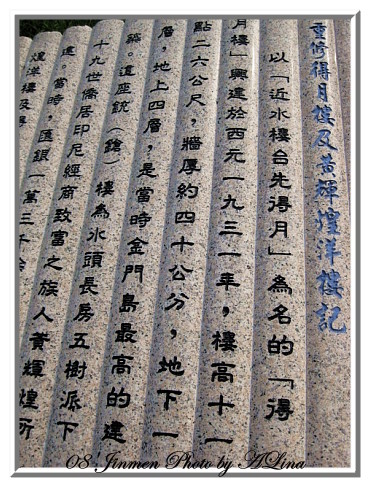 重修得月樓及黃輝煌洋樓記
以「近水樓台先得月」為名的「得
月樓」興建於西元一九三一年，樓高十一
點二六公尺，牆厚約四十公分，地下一
層，地上四層，是當時金門島最高的建
築。這座銃（鎗）樓為水頭長房五樹派下
十九世僑居印尼經商致富之族人黃輝煌所
建。當時，匯銀一萬三千餘
煌洋樓及
08 Jinmen Photo by ALina